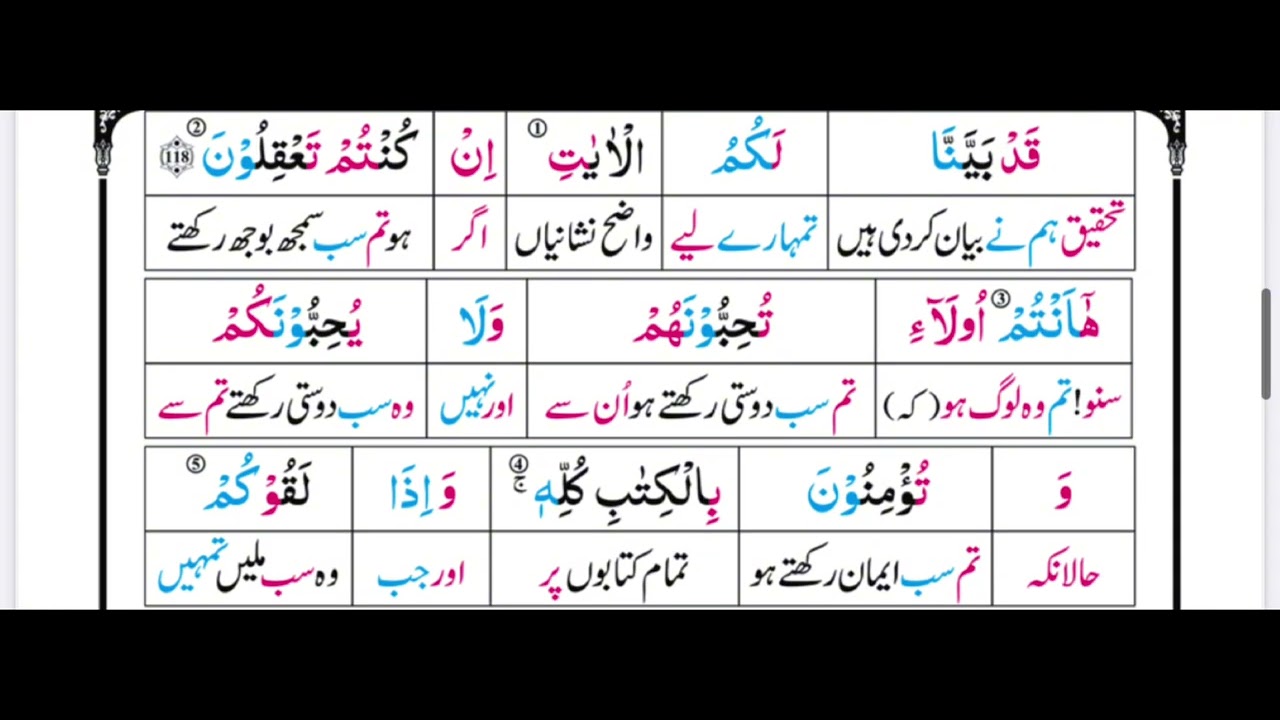 قَدْ بَيَّنَّا لَكُمُ الْاٰيٰتِ ① اِنْ كُنْتُمْ تَعْقِلُوْنَ ② 118
تحقیق ہم نے بیان کر دی ہیں تمہارے لیے واضح نشانیاں اگر ہو تم سب سمجھ بوجھ رکھتے
هٰۤاَنْتُمْ ③ اُولَآءِ تُحِبُّوْنَهُمْ وَلَا يُحِبُّوْنَكُمْ
سنو! تم وہ لوگ ہو (کہ) تم سب دوستی رکھتے ہو اُن سے اور نہیں وہ سب دوستی رکھتے تم سے
وَ تُؤْمِنُوْنَ بِالْكِتٰبِ كُلِّهٖ ④ ج وَ اِذَا لَقُوْكُمْ ⑤
حالانکہ تم سب ایمان رکھتے ہو تمام کتابوں پر اور جب وہ سب ملیں تمہیں